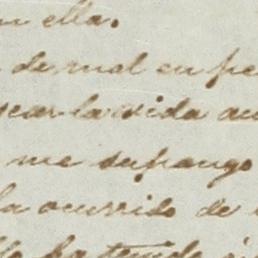 ella.
de mal en pe
sear la vida au
me supongo
ha ocurrido de
ha tenido